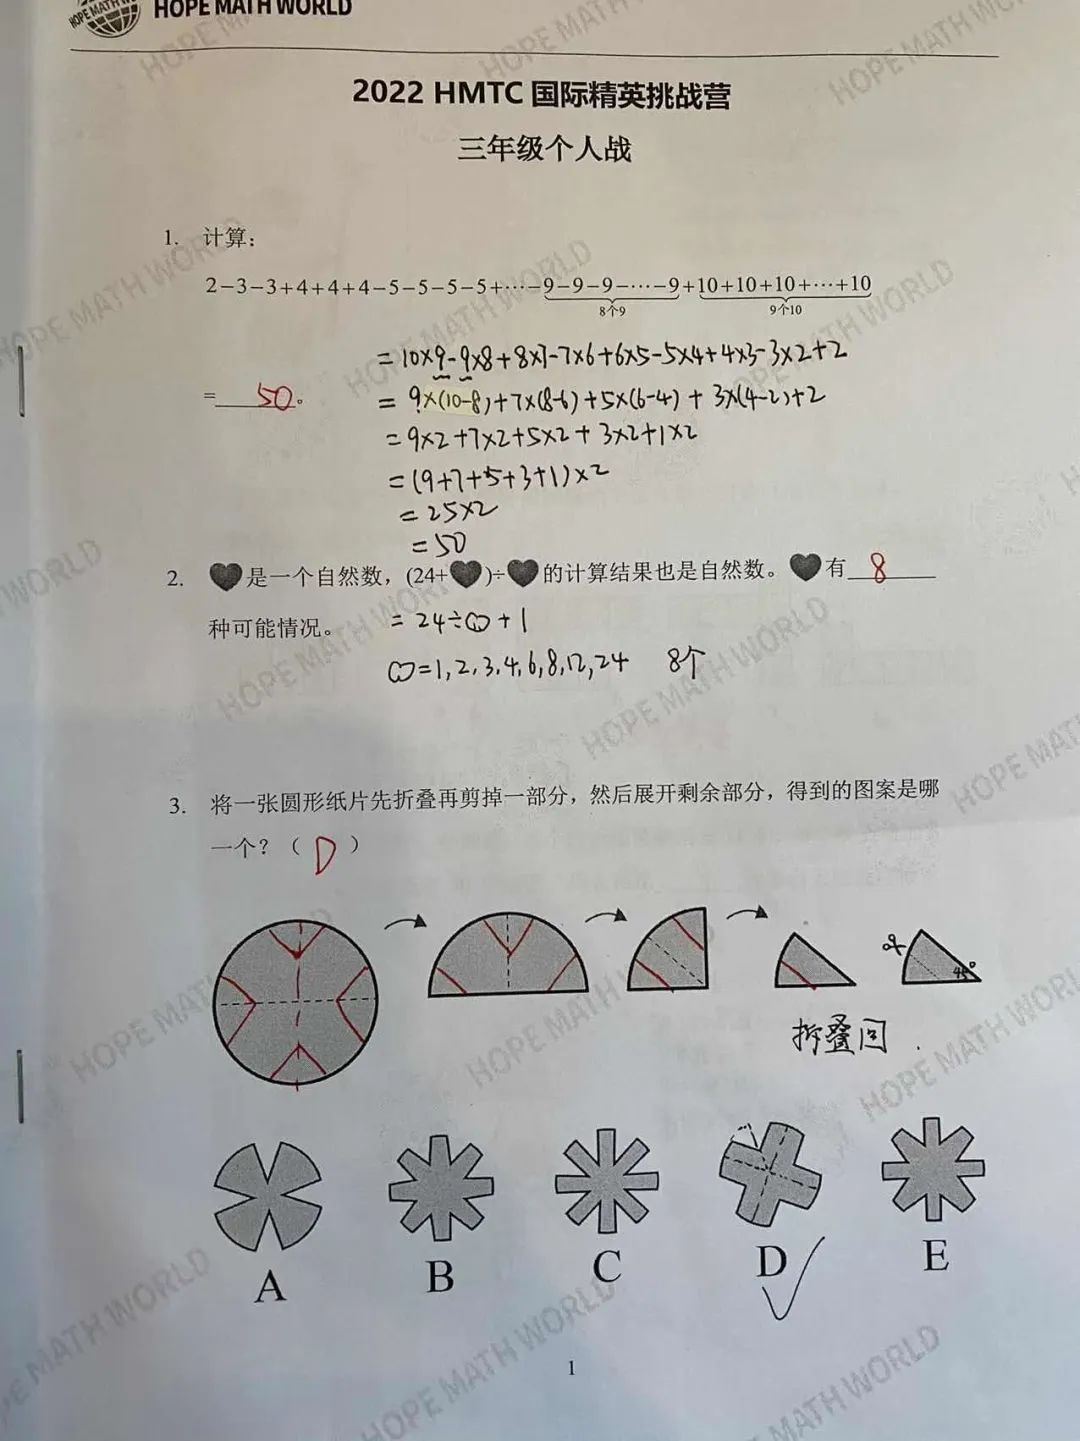 HOPE MATH WORLD
HOPE MATH WORLD
2022 HMTC 国际精英挑战营
三年级个人战
1. 计算：
2−3−3+4+4+4−5−5−5−5+⋯−9−9−9−⋯−9+10+10+10+⋯+10
8个9 9个10
= 10×9-9×8+8×7-7×6+6×5-5×4+4×3-3×2+2
= 50 。
= 9×(10-8)+7×(8-6)+5×(6-4)+3×(4-2)+2
= 9×2+7×2+5×2+3×2+1×2
= (9+7+5+3+1)×2
= 25×2
= 50
2. ♥是一个自然数，(24+♥)÷♥的计算结果也是自然数。♥有 8
种可能情况。
= 24÷♡+1
♡=1,2,3,4,6,8,12,24 8个
3. 将一张圆形纸片先折叠再剪掉一部分，然后展开剩余部分，得到的图案是哪
一个？（ D ）
45°
折叠回
A B C D E
1